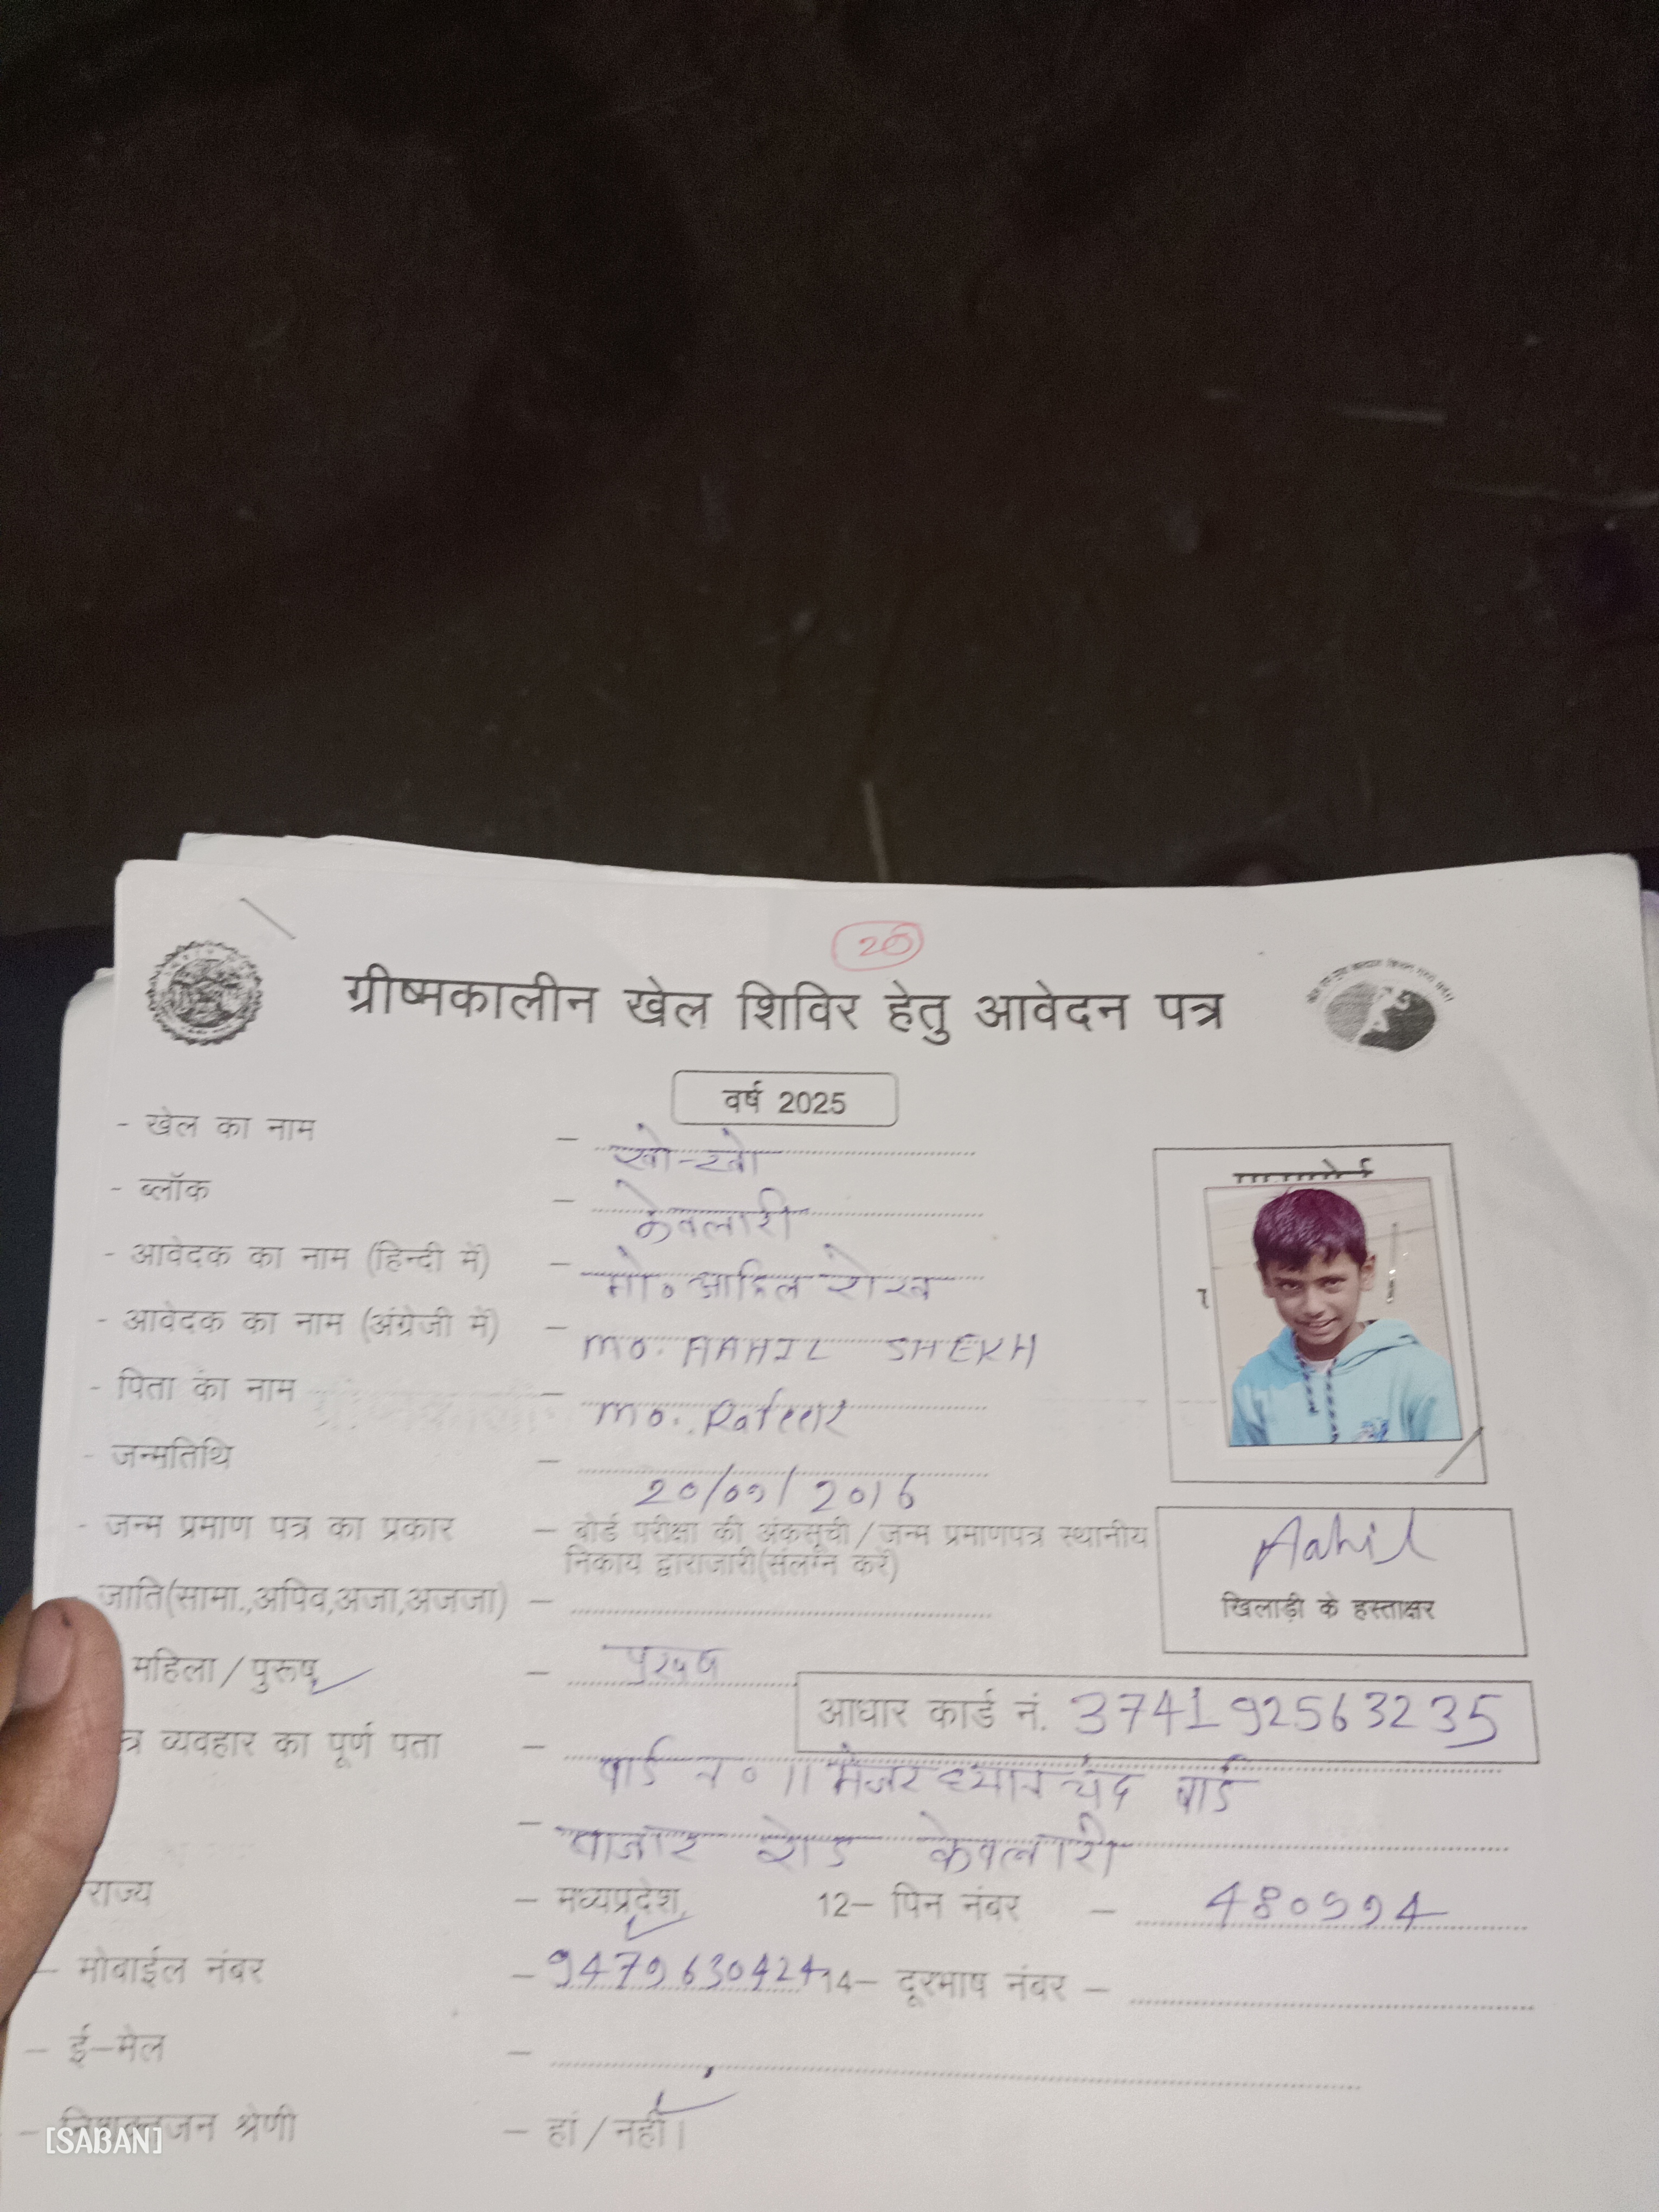 20
ग्रीष्मकालीन खेल शिविर हेतु आवेदन पत्र
वर्ष 2025
- खेल का नाम – खो-खो
- ब्लॉक – केवलारी
- आवेदक का नाम (हिन्दी में) – मो० आहिल शेख
- आवेदक का नाम (अंग्रेजी में) – MO. AAHIL SHEKH
- पिता का नाम – mo.
- जन्मतिथि – 20/09/2016
- जन्म प्रमाण पत्र का प्रकार – बोर्ड परीक्षा की अंकसूची/जन्म प्रमाणपत्र स्थानीय
निकाय द्वाराजारी(संलग्न करें)
Aahil
खिलाड़ी के हस्ताक्षर
जाति(सामा.,अपिव,अजा,अजजा) –
महिला/पुरूष – पुरुष
आधार कार्ड नं. 374192563235
त्र व्यवहार का पूर्ण पता – वार्ड न० 11 मेजर ध्यान चंद वार्ड
– बाजार रोड केवलारी
राज्य – मध्यप्रदेश, 12– पिन नंबर – 480994
– मोबाईल नंबर – 9479630424 14– दूरभाष नंबर –
– ई–मेल –
– जन श्रेणी – हां/नहीं।
[SABAN]